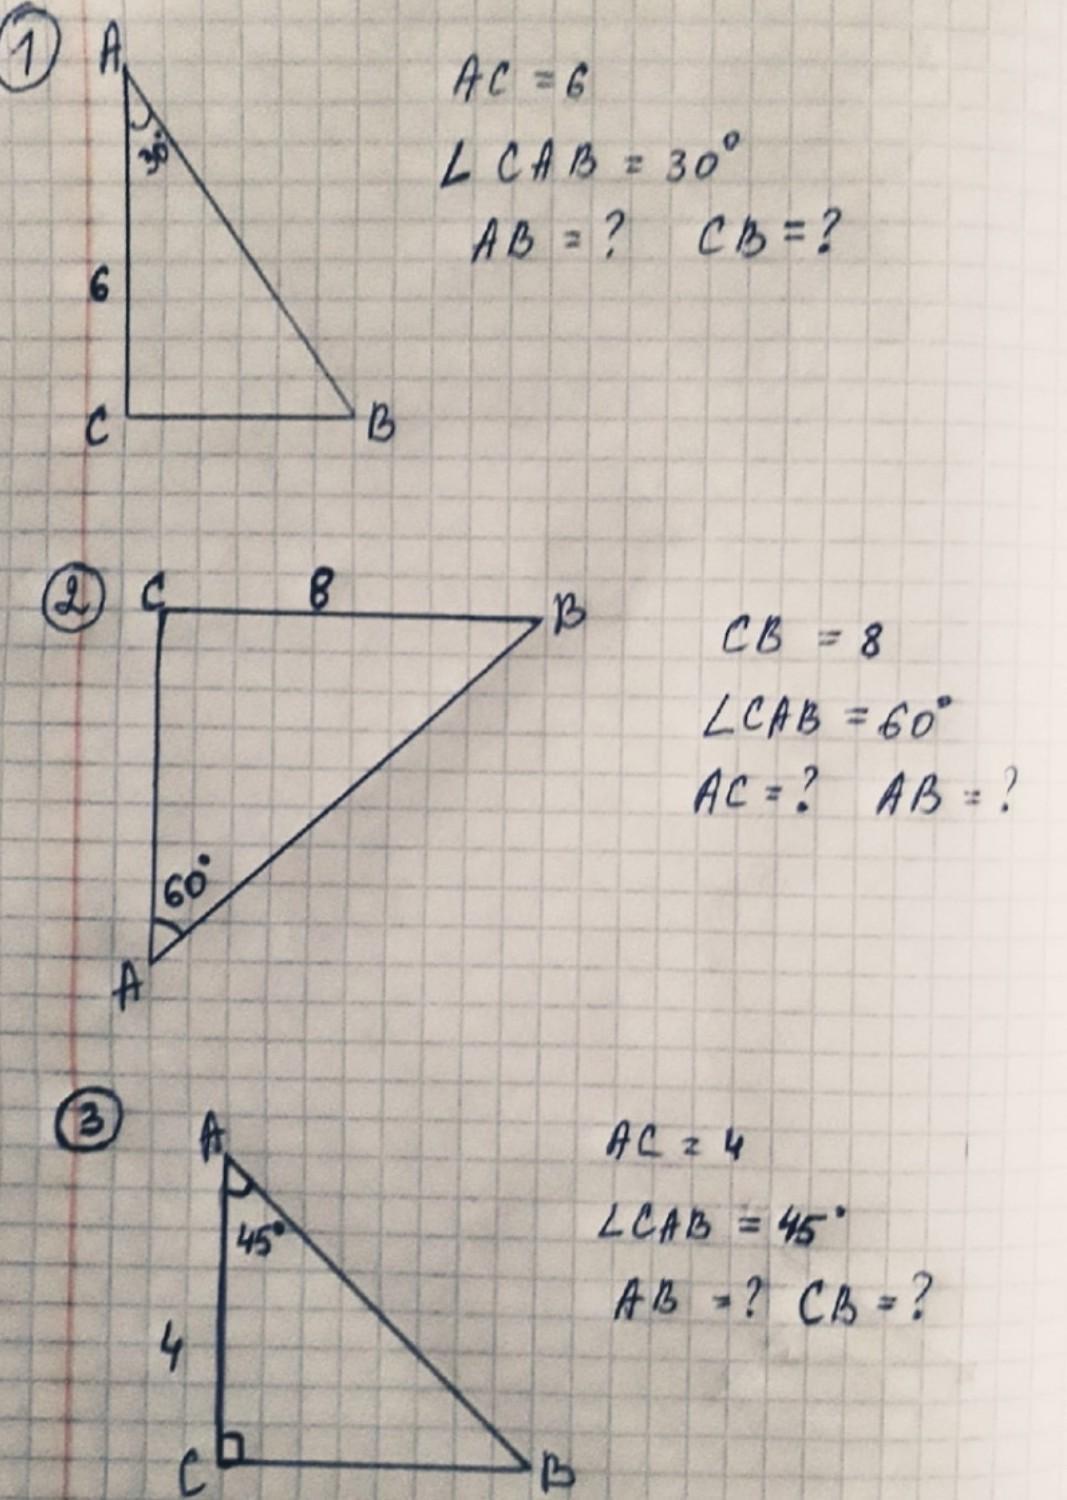 1
A
30°
6
C B
AC = 6
∠CAB = 30°
AB = ? CB = ?
2
C 8 B
60°
A
CB = 8
∠CAB = 60°
AC = ? AB = ?
3
A
45°
4
C B
AC = 4
∠CAB = 45°
AB = ? CB = ?